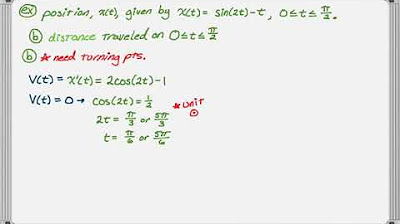 ex position, x(t), given by x(t) = sin(2t) - t, 0 ≤ t ≤ π/2.
b distance traveled on 0 ≤ t ≤ π/2
b * need turning pts.
V(t) = x'(t) = 2cos(2t) - 1
V(t) = 0 → cos(2t) = 1/2 * unit
2t = π/3 or 5π/3
t = π/6 or 5π/6